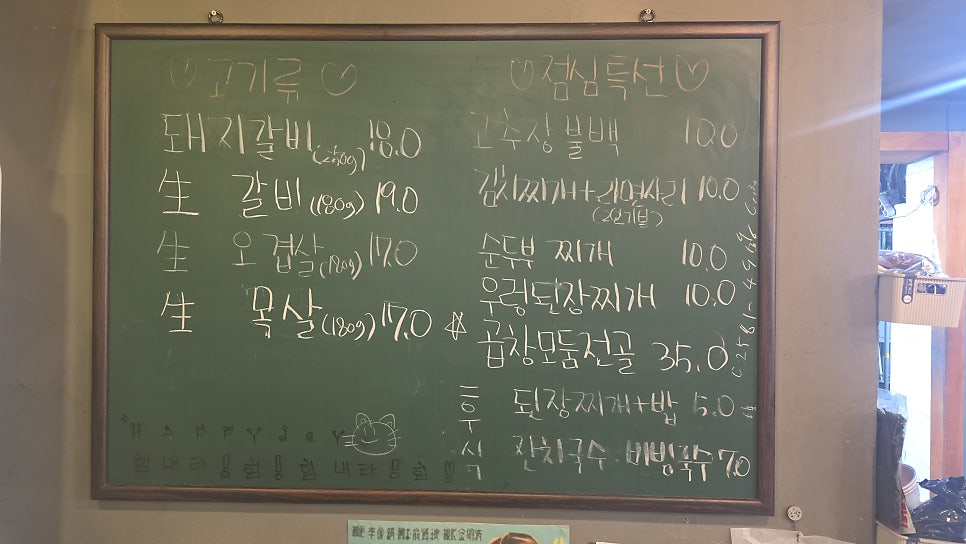 ♡고기류♡
돼지갈비(250g) 18.0
生 갈비(180g) 19.0
生 오겹살(180g) 17.0
生 목살(180g) 17.0
♡점심특선♡
고추장불백 10.0
김치찌개+라면사리 10.0
(2인기본)
순두부 찌개 10.0
우렁된장찌개 10.0
☆ 곱창모둠전골 35.0
후식
된장찌개+밥 5.0
잔치국수 비빔국수 7.0
"HAPPY day
힘내라! 힘! 힘내라! 힘!